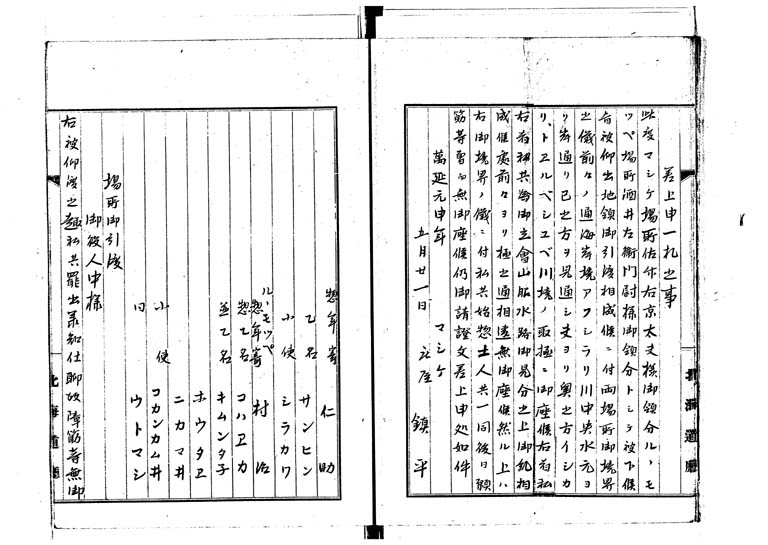 差上申一札之事
此度マシケ場所佐竹右京太夫様御領分ル、モ
ツペ場所酒井左衛門尉様御領分トシテ被下候
旨被仰出地領御引渡相成候ニ付両場所御境界
之儀前々ノ通海岸境アフシラリ川中央水元ヨ
リ岸通リ已之方ヲ見通シ夫ヨリ奥之方イシカ
リ、トヱルベシユベ川境ノ取極ニ御座候右者私
右者私共為御立會山脈水路御見分之上御糺相
成候處前々ヨリ極之通相違無御座候然ル上ハ
右御境界ノ儀ニ付私共始惣土人共一同後日願
筋等曽而無御座候仍御請證文差上申処如件
萬延元申年 マシケ
五月廿一日 鎮平
惣年寄 仁助
乙名 サンヒン
小使 シラカワ
ル、モツペ
惣年寄 村治
惣乙名 コハヱカ
並乙名 キムンタ子
ホウタヱ
ニカマ井
小使 コカンカム井
同 ウトマシ
場所御引渡
御役人中様
右被仰渡之趣私共罷出承知仕聊故障筋等無御
北海道廳
北海道廳